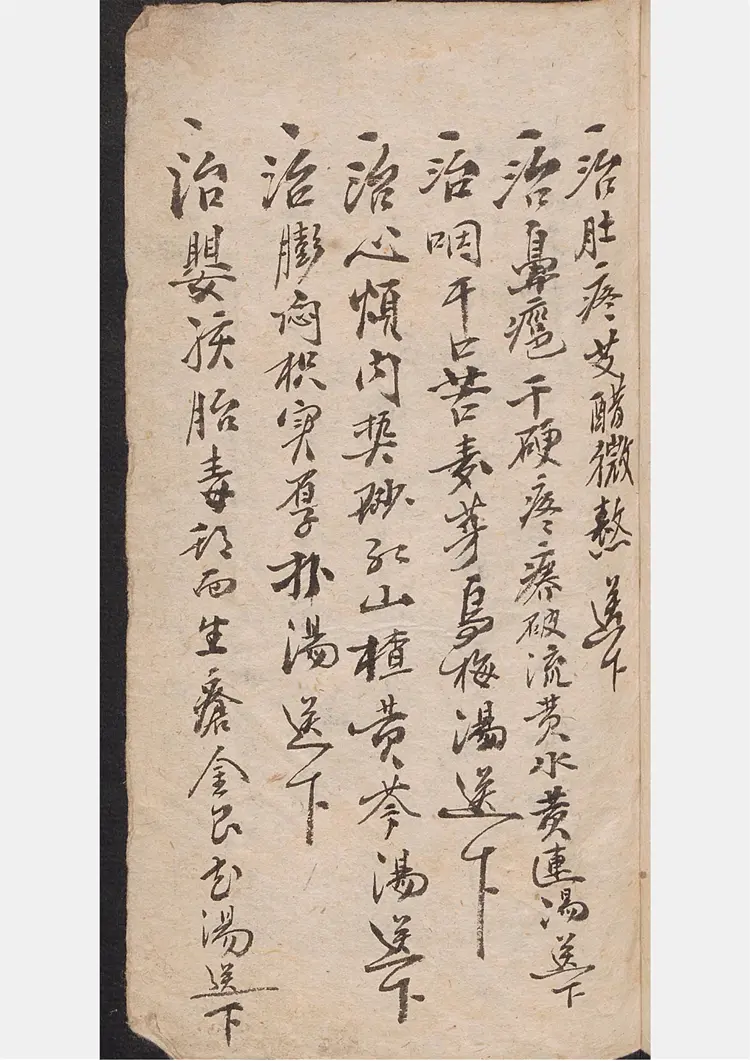 一治肚疼艾醋微熬送下
一治鼻瘡干硬疼疼破流黄水黄連湯送下
一治咽干口苦麦芽烏梅湯送下
一治心煩内热砂仁山楂黄芩湯送下
一治膨闷枳实厚朴湯送下
一治嬰孩胎毒頭面生瘡金艮花湯送下